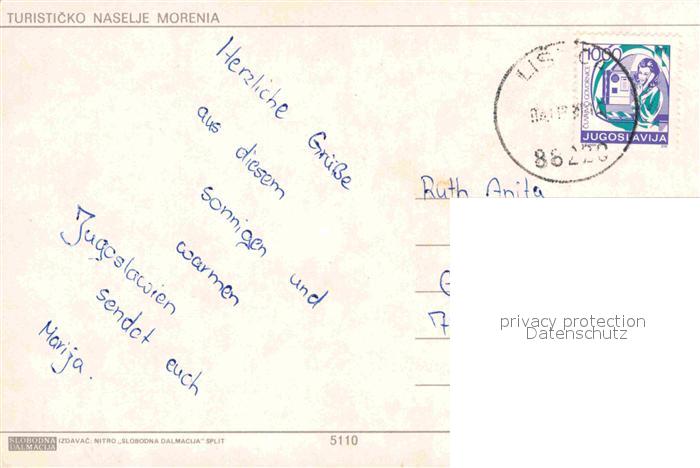 TURISTIČKO NASELJE MORENIA
Herzliche Grüße
aus diesem
sonnigen und
warmen
Jugoslawien
sendet euch
Marija.
1000
JUGOSLAVIJA
Ruth Anita
privacy protection
Datenschutz
SLOBODNA
DALMACIJA
IZDAVAČ: NITRO „SLOBODNA DALMACIJA" SPLIT
5110